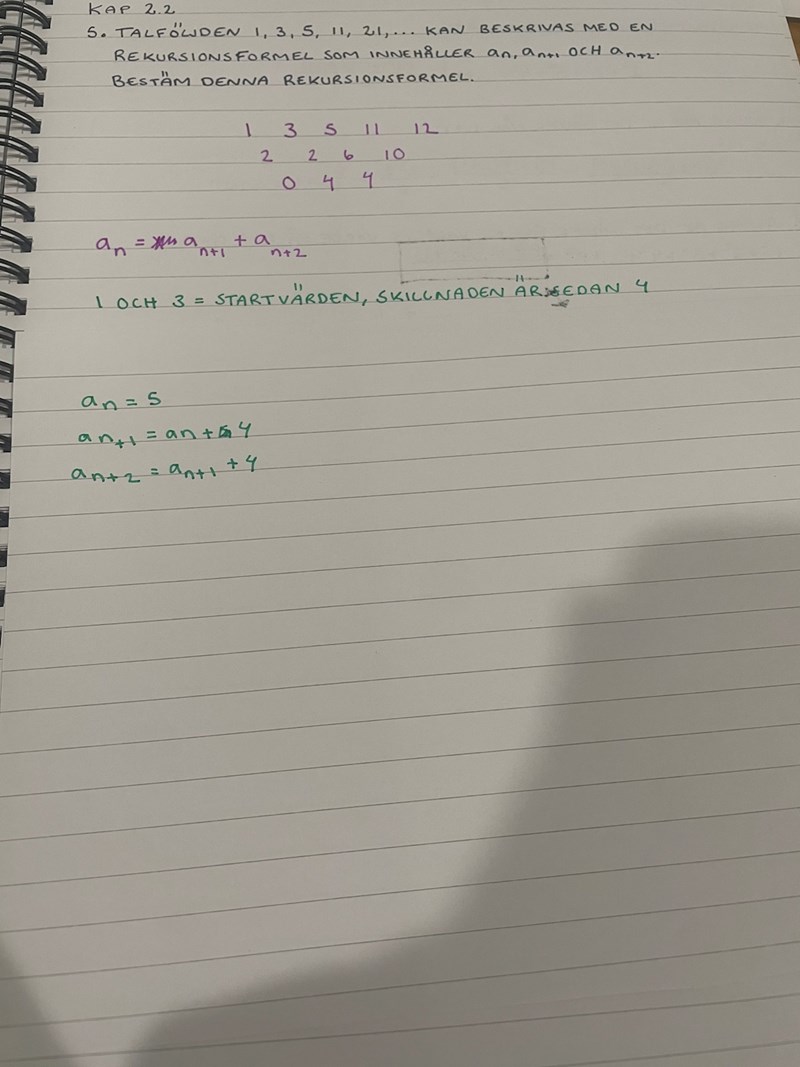 KAP 2.2
5. TALFÖLJDEN 1, 3, 5, 11, 21,... KAN BESKRIVAS MED EN
REKURSIONSFORMEL SOM INNEHÅLLER an, an+1 OCH an+2.
BESTÄM DENNA REKURSIONSFORMEL.
1 3 5 11 12
2 2 6 10
0 4 4
an = an+1 + an+2
1 OCH 3 = STARTVÄRDEN, SKILLNADEN ÄR SEDAN 4
an = 5
an+1 = an + 4
an+2 = an+1 + 4